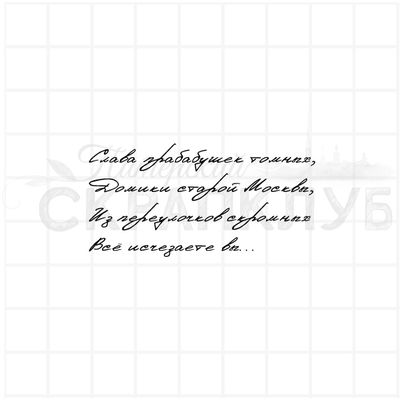 Слава прабабушек томных,
Домики старой Москвы,
Из переулочков скромных
Всё исчезаете вы...
СКРАПКЛУБ